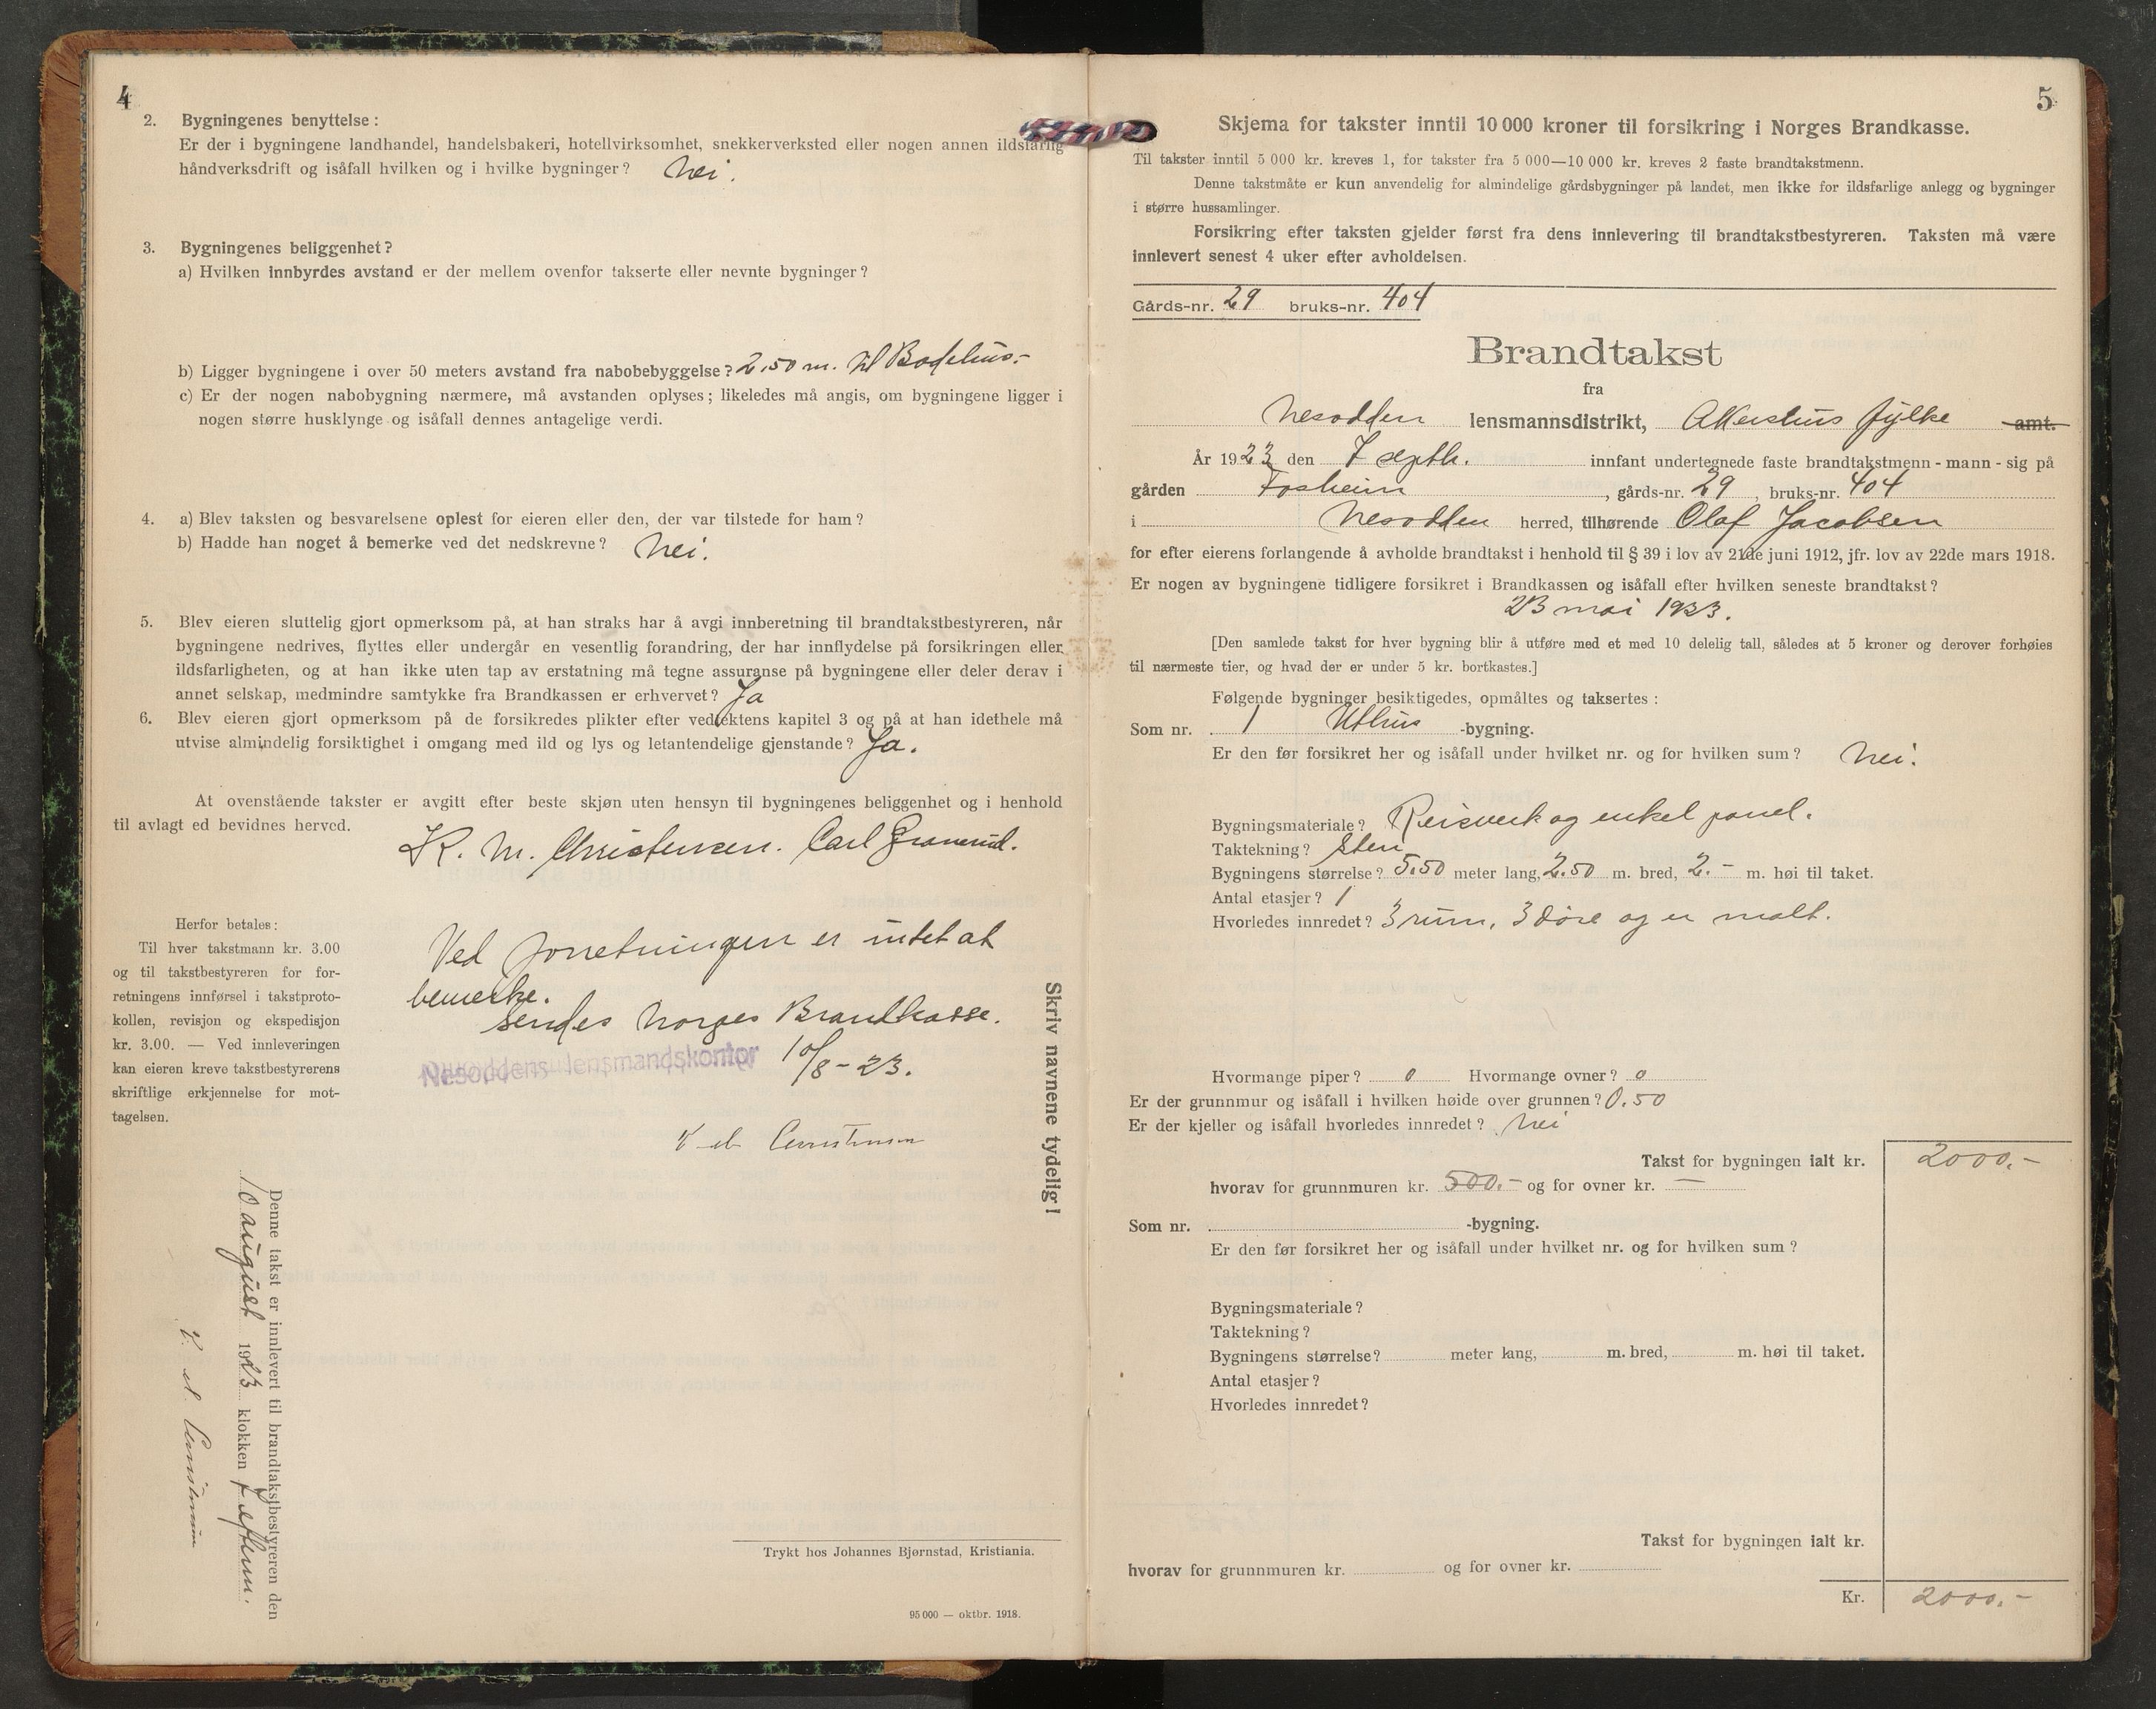 4
2. Bygningenes benyttelse:
Er der i bygningene landhandel, handelsbakeri, hotellvirksomhet, snekkerverksted eller nogen annen ildsfarlig
håndverksdrift og isåfall hvilken og i hvilke bygninger? Nei.
3. Bygningenes beliggenhet?
a) Hvilken innbyrdes avstand er der mellem ovenfor takserte eller nevnte bygninger?
b) Ligger bygningene i over 50 meters avstand fra nabobebyggelse? 2,50 m. til Badehus.-
c) Er der nogen nabobygning nærmere, må avstanden oplyses; likeledes må angis, om bygningene ligger i
nogen større husklynge og isåfall dennes antagelige verdi.
4. a) Blev taksten og besvarelsene oplest for eieren eller den, der var tilstede for ham?
b) Hadde han noget å bemerke ved det nedskrevne? Nei.
5. Blev eieren sluttelig gjort opmerksom på, at han straks har å avgi innberetning til brandtakstbestyreren, når
bygningene nedrives, flyttes eller undergår en vesentlig forandring, der har innflydelse på forsikringen eller
ildsfarligheten, og at han ikke uten tap av erstatning må tegne assuranse på bygningene eller deler derav i
annet selskap, medmindre samtykke fra Brandkassen er erhvervet? Ja
6. Blev eieren gjort opmerksom på de forsikredes plikter efter vedtektens kapitel 3 og på at han idethele må
utvise almindelig forsiktighet i omgang med ild og lys og letantendelige gjenstande? Ja.
At ovenstående takster er avgitt efter beste skjøn uten hensyn til bygningenes beliggenhet og i henhold
til avlagt ed bevidnes herved.
K. M. Christensen. Carl Granerud.
Herfor betales:
Til hver takstmann kr. 3.00
og til takstbestyreren for for-
retningens innførsel i takstproto-
kollen, revisjon og ekspedisjon
kr. 3.00. — Ved innleveringen
kan eieren kreve takstbestyrerens
skriftlige erkjennelse for mot-
tagelsen.
Ved forretningen er intet at
bemerke.
Sendes Norges Brandkasse.
Nesoddens lensmandskontor 10/8-23.
K M Christensen
Skriv navnene tydelig!
Denne takst er innlevert til brandtakstbestyreren den
10 august 1923 klokken 7 efterm.
K. M. Christensen
Trykt hos Johannes Bjørnstad, Kristiania.
95 000 — oktbr. 1918.
5
Skjema for takster inntil 10 000 kroner til forsikring i Norges Brandkasse.
Til takster inntil 5 000 kr. kreves 1, for takster fra 5 000—10 000 kr. kreves 2 faste brandtakstmenn.
Denne takstmåte er kun anvendelig for almindelige gårdsbygninger på landet, men ikke for ildsfarlige anlegg og bygninger
i større hussamlinger.
Forsikring efter taksten gjelder først fra dens innlevering til brandtakstbestyreren. Taksten må være
innlevert senest 4 uker efter avholdelsen.
Gårds-nr. 29 bruks-nr. 404
Brandtakst
fra
Nesodden lensmannsdistrikt, Akershus fylke amt.
År 1923 den 7 septb. innfant undertegnede faste brandtakstmenn - mann - sig på
gården Fosheim, gårds-nr. 29, bruks-nr. 404
i Nesodden herred, tilhørende Olaf Jacobsen
for efter eierens forlangende å avholde brandtakst i henhold til § 39 i lov av 21de juni 1912, jfr. lov av 22de mars 1918.
Er nogen av bygningene tidligere forsikret i Brandkassen og isåfall efter hvilken seneste brandtakst?
23 mai 1923.
[Den samlede takst for hver bygning blir å utføre med et med 10 delelig tall, således at 5 kroner og derover forhøies
til nærmeste tier, og hvad der er under 5 kr. bortkastes.]
Følgende bygninger besiktigedes, opmåltes og taksertes:
Som nr. 1 Uthus -bygning.
Er den før forsikret her og isåfall under hvilket nr. og for hvilken sum? Nei.
Bygningsmateriale? Reisverk og enkel panel.
Taktekning? Sten
Bygningens størrelse? 5.50 meter lang, 2.50 m. bred, 2.- m. høi til taket.
Antal etasjer? 1
Hvorledes innredet? 3 rum, 3 döre og er malt.
Hvormange piper? 0 Hvormange ovner? 0
Er der grunnmur og isåfall i hvilken høide over grunnen? 0.50
Er der kjeller og isåfall hvorledes innredet? Nei
Takst for bygningen ialt kr. 2000.-
hvorav for grunnmuren kr. 500.- og for ovner kr. —
Som nr. -bygning.
Er den før forsikret her og isåfall under hvilket nr. og for hvilken sum?
Bygningsmateriale?
Taktekning?
Bygningens størrelse? meter lang, m. bred, m. høi til taket.
Antal etasjer?
Hvorledes innredet?
Takst for bygningen ialt kr.
hvorav for grunnmuren kr. og for ovner kr.
Kr. 2000.-